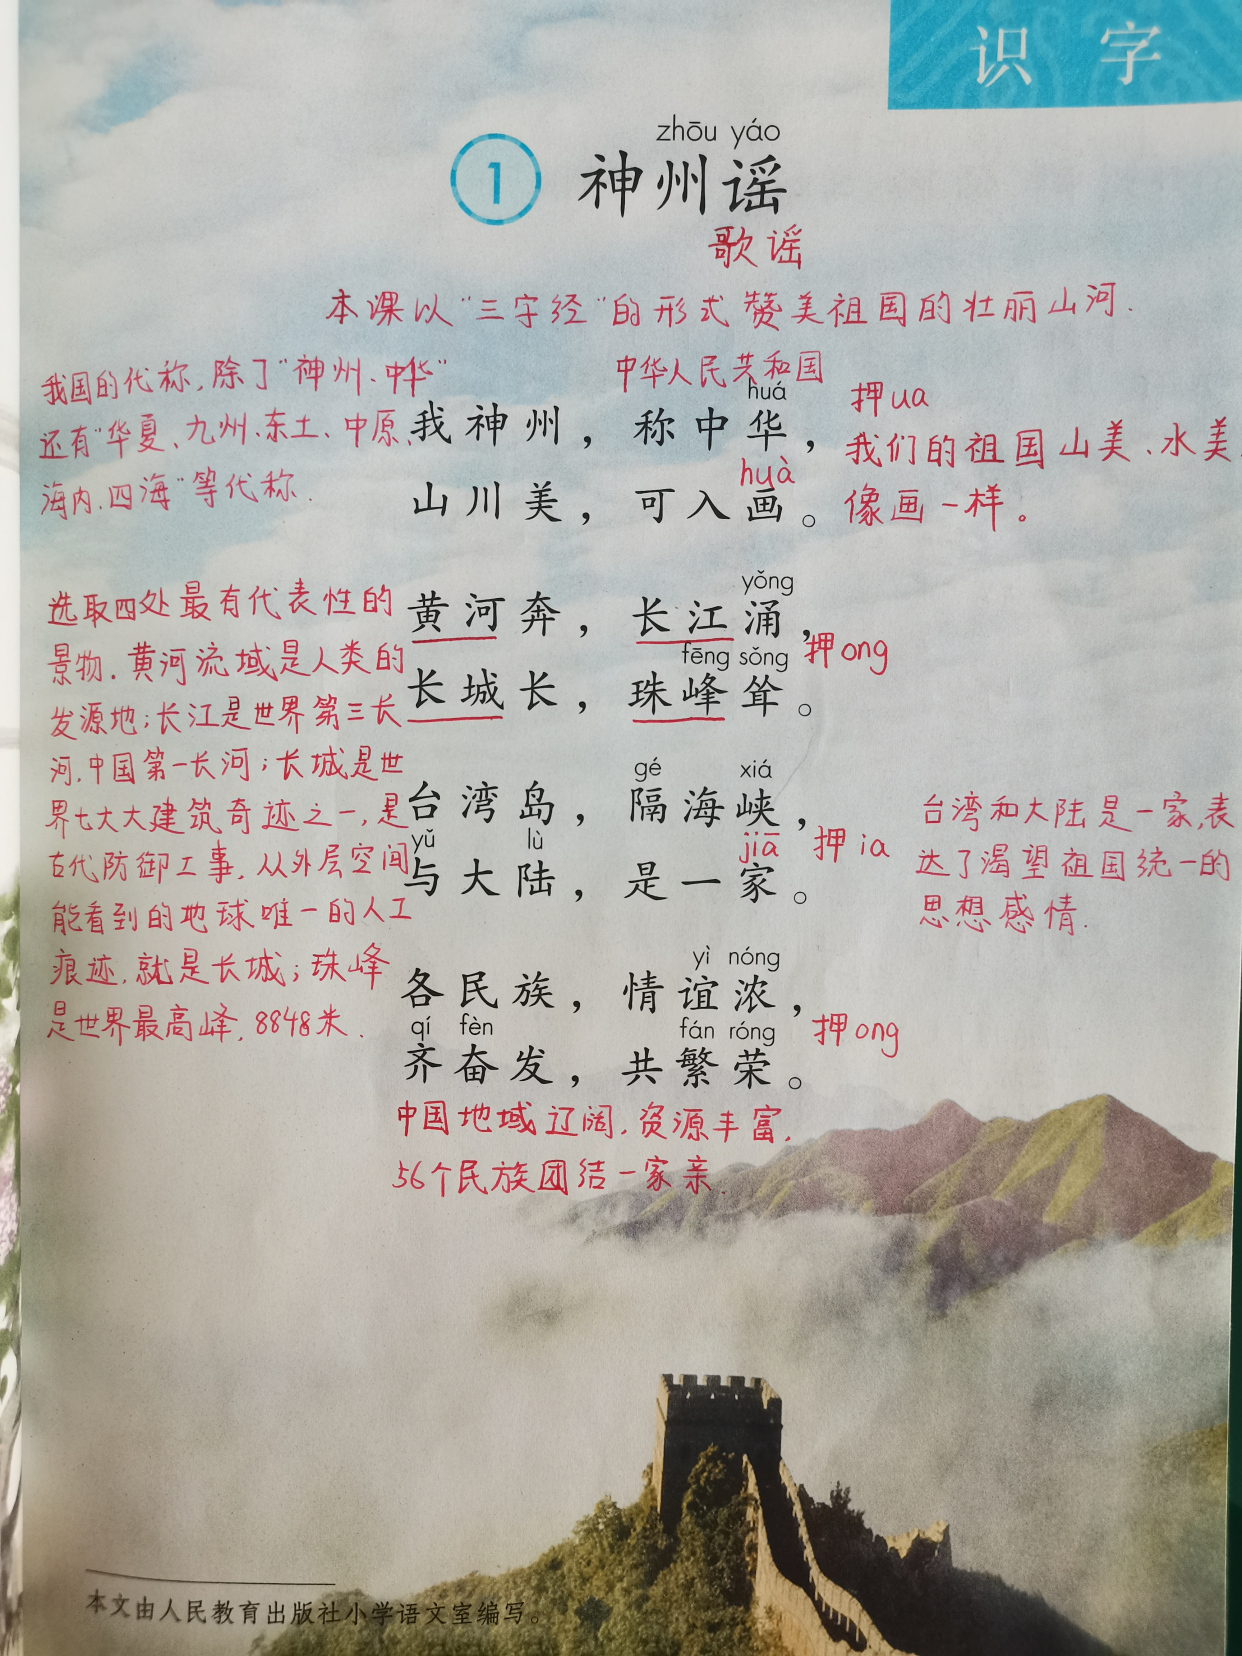 识 字
zhōu yáo
1 神州谣
歌谣
本课以“三字经”的形式赞美祖国的壮丽山河.
我国的代称,除了“神州、中华”
还有“华夏、九州、东土、中原、
海内、四海”等代称.
中华人民共和国
huá
我神州，称中华，
押ua
huà
山川美，可入画。
我们的祖国山美、水美,
像画一样。
选取四处最有代表性的
景物.黄河流域是人类的
发源地;长江是世界第三长
河,中国第一长河;长城是世
界七大大建筑奇迹之一,是
古代防御工事,从外层空间
能看到的地球唯一的人工
痕迹,就是长城;珠峰
是世界最高峰,8848米.
yǒng
黄河奔，长江涌，
fēng sǒng
长城长，珠峰耸。
押ong
gé xiá
台湾岛，隔海峡，
yǔ lù jiā
与大陆，是一家。
押ia
台湾和大陆是一家,表
达了渴望祖国统一的
思想感情.
yì nóng
各民族，情谊浓，
qí fèn fán róng
齐奋发，共繁荣。
押ong
中国地域辽阔,资源丰富,
56个民族团结一家亲.
本文由人民教育出版社小学语文室编写。